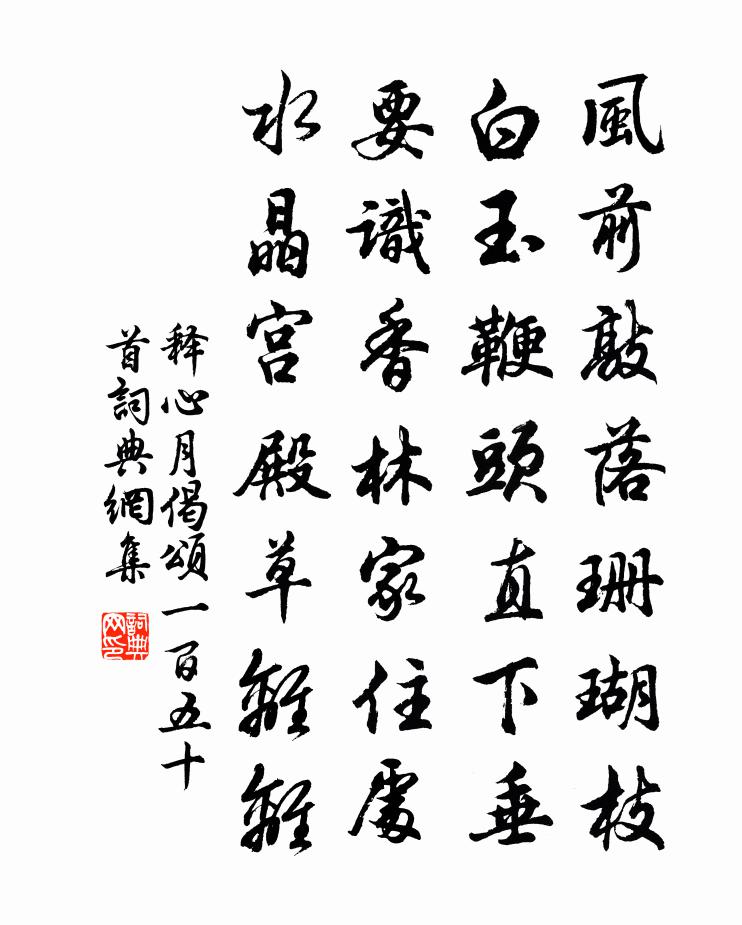 風前敲落珊瑚枝
白玉鞭頭直下垂
要識香林家住處
水晶宮殿草離離
释心月偈頌一百五十
首詞典網集
詞典网印